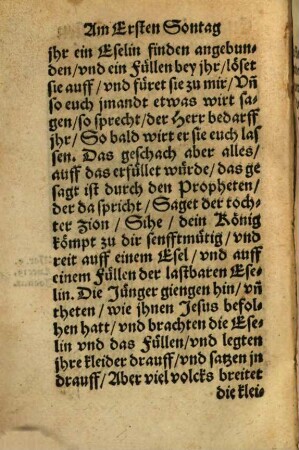 Am Ersten Sontag
jhr ein Eselin finden angebun-
den/vnd ein Füllen bey jhr/löset
sie auff/vnd füret sie zu mir/Vñ
so euch jmandt etwas wirt sa-
gen/so sprecht/der Herr bedarff
jhr/So bald wirt er sie euch las
sen. Das geschach aber alles/
auff das erfüllet würde/das ge
sagt ist durch den Propheten/
der da spricht/Saget der toch-
ter Zion/Sihe/dein König
kömpt zu dir senfftmütig/vnd
reit auff einem Esel/vnd auff
einem Füllen der lastbaren Ese-
lin. Die Jünger giengen hin/vñ
theten/wie jhnen Jesus befol-
hen hatt/vnd brachten die Ese-
lin vnd das Füllen/vnd legten
jhre kleider drauff/vnd satzen jn
drauff/Aber viel volcks breitet
die klei-